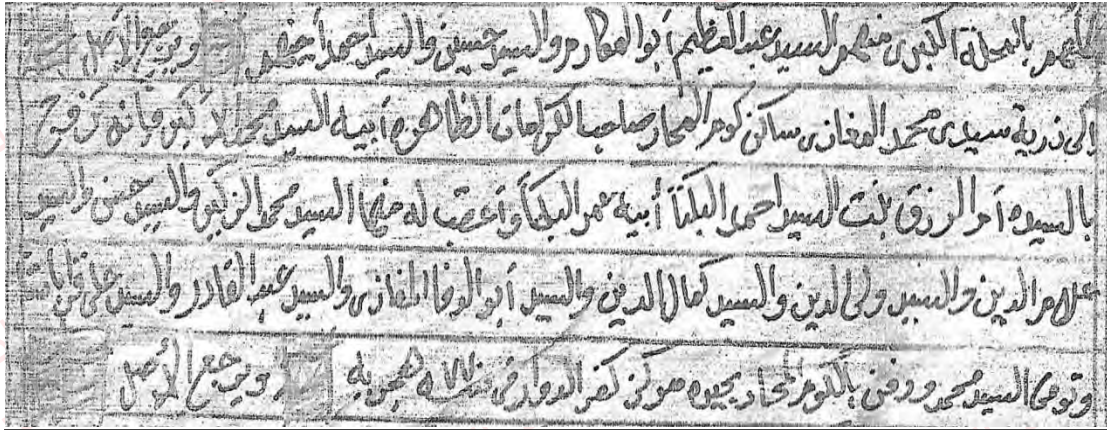 بالمحلة الكبرى منهم السيد عبد العظيم أبو المكارم والسيد حسين والسيد أحمد ويرجع الأصل
إلى ذرية سيدى محمد المغازى ساكن كوم المحار صاحب الكرامات الظاهره أبيه السيد محمد الأ كبر فإنه تزوج
بالسيده أم الرزق بنت السيد احمد البكتا أبيه عمر البكتا وأعقب له منها السيد محمد الزكى والسيد حسن والسيد
علام الدين والسيد ولى الدين والسيد كمال الدين والسيد أبو الوفا المغازى والسيد عبد القادر والسيد على
وتوفى السيد محمد ودفن بالكوم المحار بحيره مركز كفر الدوار فى هجريه ويرجع الأصل